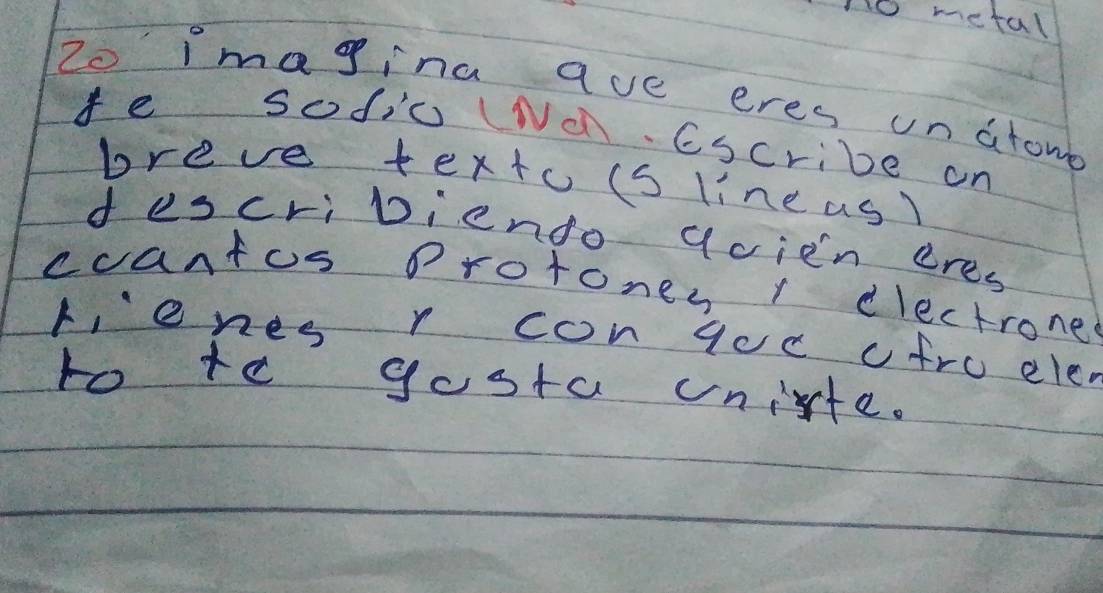 no metal
20 imagina que eres un átomo
de sodio (Na). Escribe un
breve texto (5 lineas)
describiendo quién eres
cuantos Protones y electrones
tienes y con que otro elem
to te gusta unirte.